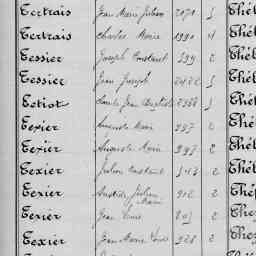 Tertrais Jean Marie Julien 2071 1 Thél
Tertrais Charles Marie 1990 4 Thél
Tessier Joseph Constant 599 2 Thél
Tessier Jean Joseph 2422 1 Thél
Tetiot Louis Jean Baptiste 2388 1 Thél
Texier Auguste Marie 997 2 Thél
Texier Auguste Marie 997 2 Thél
Texier Julien Constant 2 Thél
Texier Aristide Julien Marie 912 2 Thép
Texier Jean Louis 2 Thez
Texier Jean Marie Louis 928 2 Thez